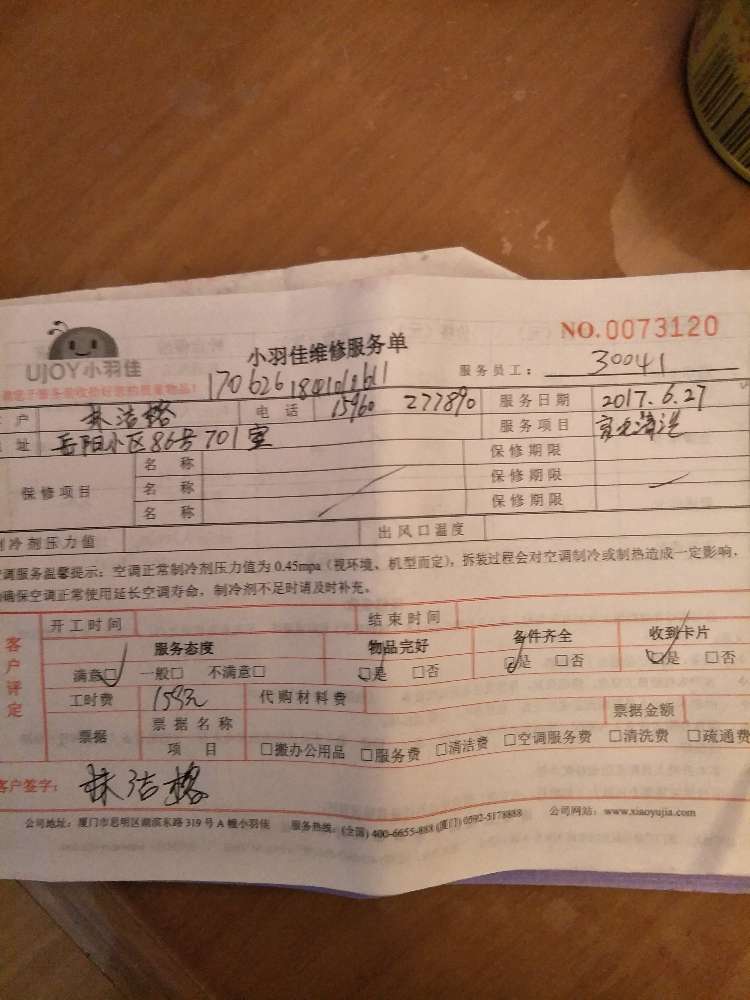 NO.0073120
UJOY小羽佳
小羽佳维修服务单
服务员工: 30041
户 林洁榕 电话 15960 277890 服务日期 2017.6.27
址 岳阳小区86号701室 服务项目
保修项目 名称 保修期限
名称 保修期限
名称 保修期限
冷剂压力值 出风口温度
调服务温馨提示: 空调正常制冷剂压力值为 0.45mpa (视环境、机型而定), 拆装过程会对空调制冷或制热造成一定影响,
确保空调正常使用延长空调寿命, 制冷剂不足时请及时补充。
客户评定
开工时间 结束时间
服务态度 物品完好 备件齐全 收到卡片
满意□ 一般□ 不满意□ □是 □否 □是 □否 □是 □否
工时费 159元 代购材料费
票据 票据名称 票据金额
项目 □搬办公用品 □服务费 □清洁费 □空调服务费 □清洗费 □疏通费
客户签字: 林洁榕
公司地址: 厦门市思明区湖滨东路 319 号 A 幢小羽佳 服务热线: (全国) 400-6655-888 (厦门) 0592-5178888 公司网站: www.xiaoyujia.com